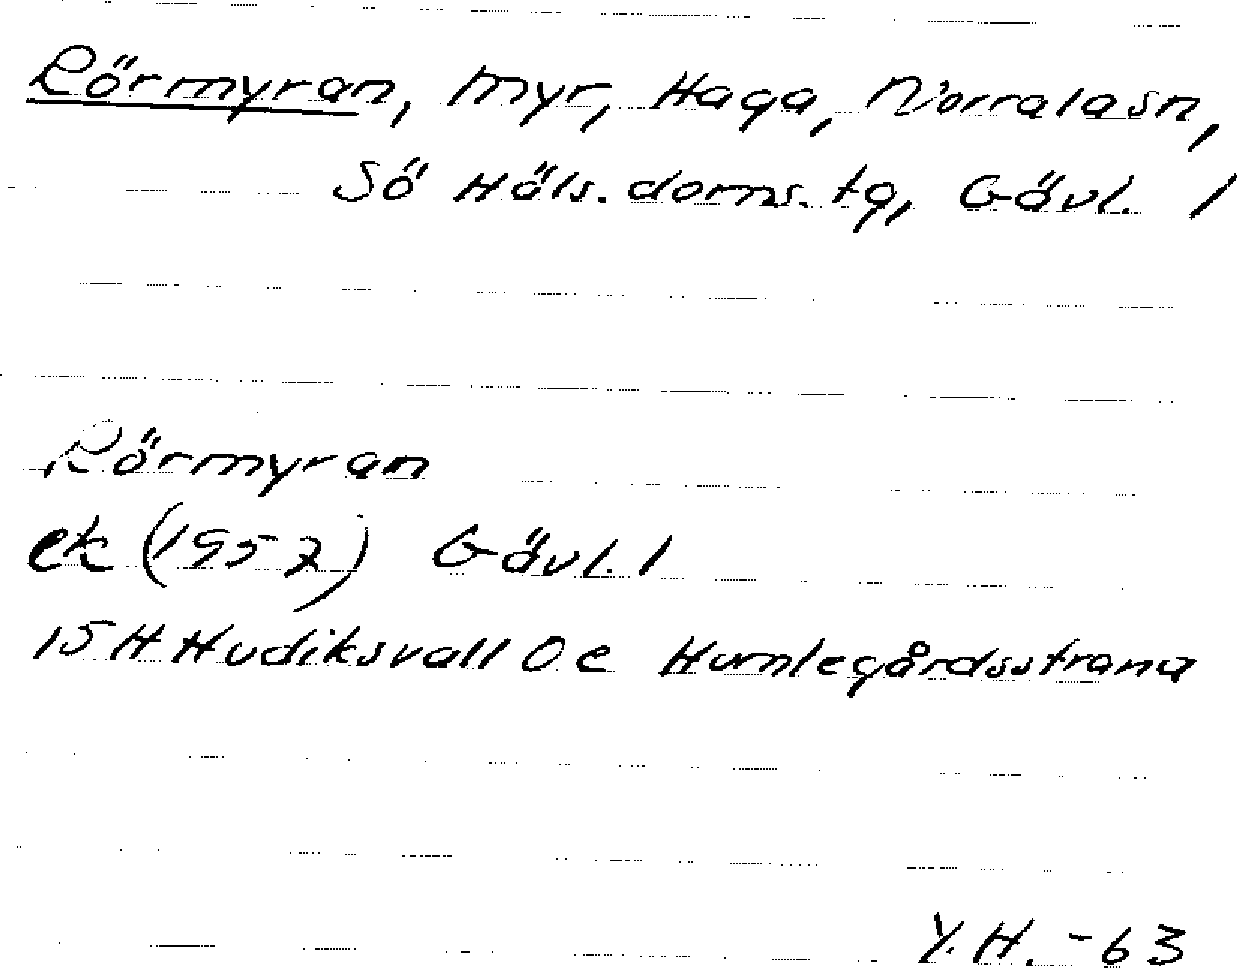 Rörmyran, myr, Haga, Norrala sn,
Sö Häls. doms. tg, Gävl. l
Rörmyran
ek (1957) Gävl. l
15H Hudiksvall 0e Humlegårdsstrand
Y.H. -63